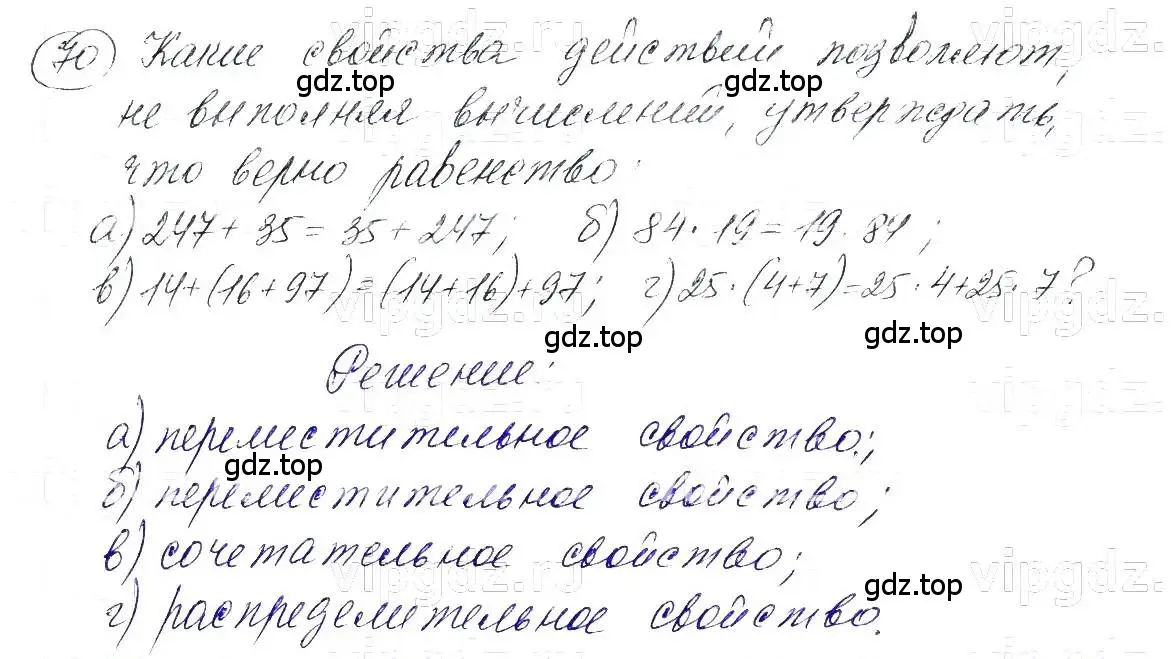 70 Какие свойства действий позволяют,
не выполняя вычислений, утверждать,
что верно равенство:
а) 247 + 35 = 35 + 247; б) 84 · 19 = 19 · 84;
в) 14+(16+97)=(14+16)+97; г) 25·(4+7)=25·4+25·7?
Решение:
а) переместительное свойство;
б) переместительное свойство;
в) сочетательное свойство;
г) распределительное свойство.
gdz.top
gdz.top
gdz.top
gdz.top
gdz.top
gdz.top
gdz.top